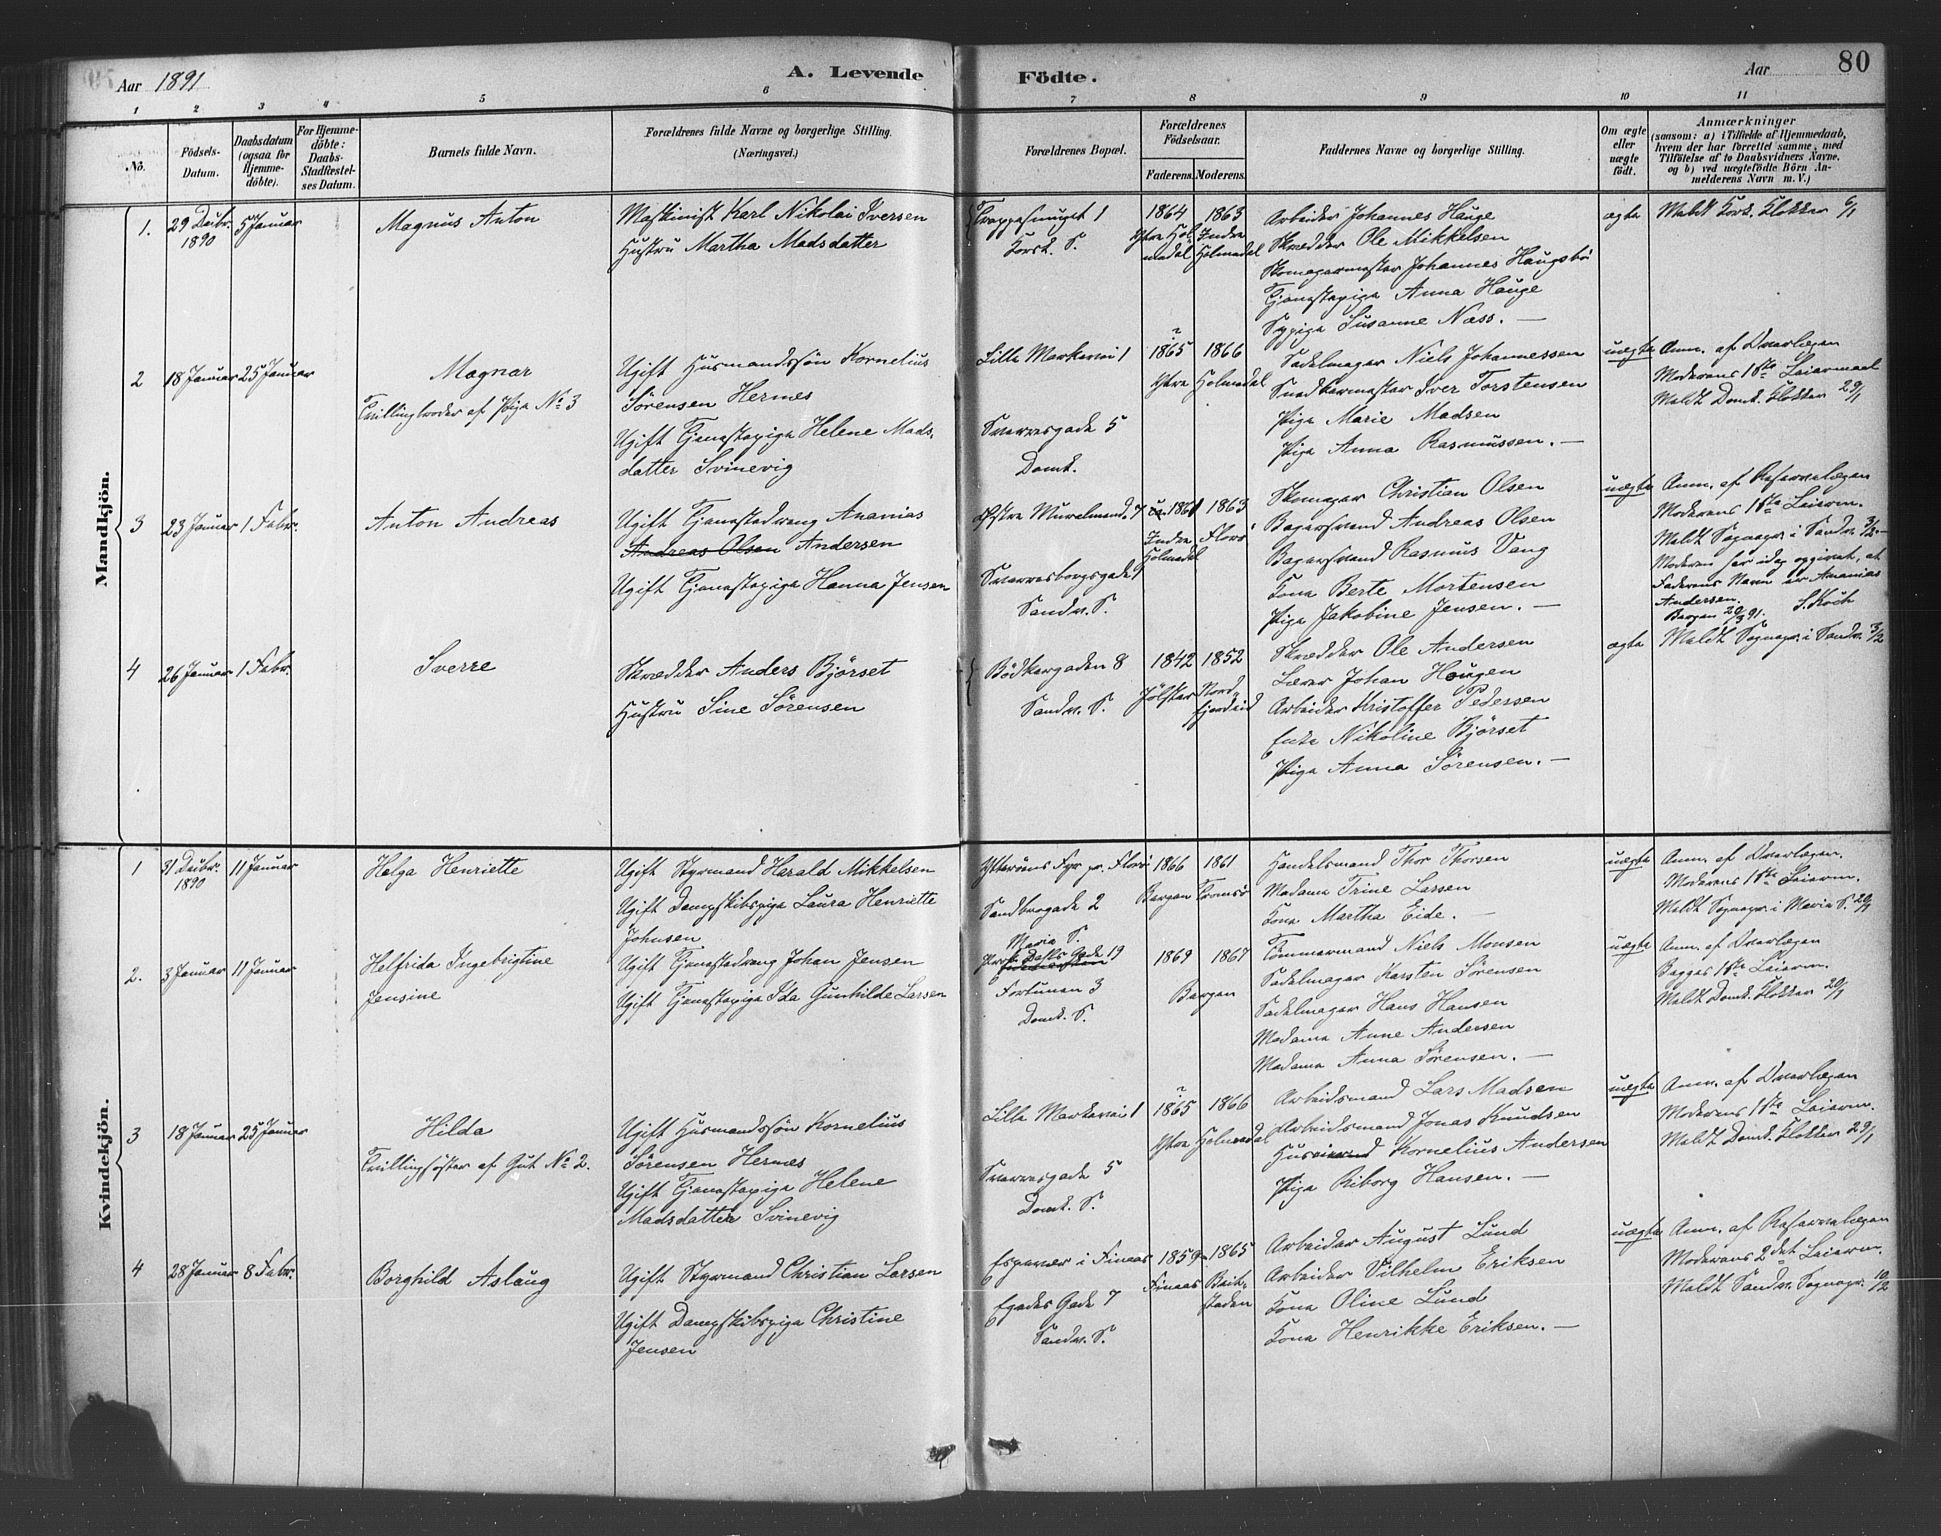 Aar 1891
A. Levende Födte.
Aar
80
1 2 3 4 5 6 7 8 9 10 11
No.
Födsels-Datum.
Daabsdatum (ogsaa for Hjemme-döbte).
For Hjemme-döbte: Daabs-Stadfæstel-ses Datum.
Barnets fulde Navn.
Forældrenes fulde Navne og borgerlige Stilling. (Næringsvei.)
Forældrenes Bopæl.
Forældrenes Födselsaar.
Faderens. Moderens.
Faddernes Navne og borgerlige Stilling.
Om ægte eller uægte födt.
Anmærkninger
(saasom: a) i Tilfælde af Hjemmedaab, hvem der har forrettet samme, med Tilföielse af to Daabsvidners Navne, og b) ved uægtefödte Börn An-melderens Navn m. V.)
Mandkjön.
1. 29 Decbr. 1890 5 Januar
Magnus Anton
Maskinist Karl Nikolai Iversen
Hustru Martha Madsdatter
Trappesmuget 1
Korsk. S.
1864 1863
Ytre Hol-medal Indre Holmedal
Arbeider Johannes Hauge
Skrædder Ole Mikkelsen
Skomagermester Johannes Haugsbö
Tjenestepige Anna Hauge
Sypige Susanne Næss. —
ægte
Meldt Kork. Klokker 6/1
2 18 Januar 25 Januar
Magnar
Tvillingbroder af Pige No 3
Ugift Husmandssön Kornelius
Sörensen Hermes
Ugift Tjenestepige Helene Mads-
datter Svinevig
Lille Markevei 1
Sverresgade 5
Domk.
? 1865 1866
Ytre Holmedal
Sadelmager Niels Johannessen
Snedkermester Iver Torstensen
Pige Marie Madsen
Pige Anna Rasmussen. —
uægte
Anm. af Overlægen
Moderens 1ste Leiermaal
Meldt Domk. Klokker 29/1
3 23 Januar 1 Febr.
Anton Andreas
Ugift Tjenestedreng Ananias
Andreas Olsen Andersen
Ugift Tjenestepige Hanna Jensen
Östre Murelmend. 7
Sverresborgsgade 1
Sandv. S.
ca. 1861 1863
Indre Holmedal Florö
Skomager Christian Olsen
Bagersvend Andreas Olsen
Bagersvend Rasmus Vang
Kone Berte Mortensen
Pige Jakobine Jensen. —
uægte
Anm. af Reservelægen
Moderens 1ste Leierm.
Meldt Sognepr. i Sandv. 3/2
Moderen har idag opgivet, at
Faderens Navn er Ananias
Andersen.
Bergen 20/3 91. S. Koch
4 26 Januar 1 Febr.
Sverre
Skrædder Anders Bjørset
Hustru Sine Sörensen
Bödkergaden 8
Sandv. S.
1842 1852
Jölster Nord-fjordeid
Skrædder Ole Andersen
Lærer Johan Hougen
Arbeider Kristoffer Pedersen
Enke Nikoline Bjørset
Pige Anna Sörensen. —
ægte
Meldt Sognepr. i Sandv. 3/2
Kvindekjön.
1 31 Decbr. 1890 11 Januar
Helga Henriette
Ugift Styrmand Harald Mikkelsen
Ugift Dampskibspige Laura Henriette
Johnsen
Ytteröens Fyr pr. Florö
Sandbrogade 2
Maria S.
1866 1861
Bergen Tromsö
Handelsmand Thor Thorsen
Madame Trine Larsen
Kone Martha Eide. —
uægte
Anm. af Overlægen.
Moderens 1ste Leierm.
Meldt Sognepr. i Maria S. 20/1
2. 3 Januar 11 Januar
Helfrida Ingebrigtine
Jensine
Ugift Tjenestedreng Johan Jensen
Ugift Tjenestepige Ida Gunhilde Larsen
Gade 19
Fortunen 3
Domk. S.
1869 1867
Bergen
Tömmermand Niels Monsen
Sadelmager Karsten Sörensen
Sadelmager Hans Hansen
Madame Anne Andersen
Madame Anna Sörensen. —
uægte
Anm. af Overlægen
Begges 1ste Leierm.
Meldt Domk. Klokker 20/1
3 18 Januar 25 Januar
Hilda
Tvillingsöster af Gut No 2.
Ugift Husmandssön Kornelius
Sörensen Hermes
Ugift Tjenestepige Helene
Madsdatter Svinevig
Lille Markevei 1
Sverresgade 5
Domk. S.
? 1865 1866
Ytre Holmedal
Arbeidsmand Lars Madsen
Arbeidsmand Jonas Knudsen
Kornelius Andersen
Pige Riborg Hansen. —
uægte
Anm. af Overlægen
Moderens 1ste Leierm.
Meldt Domk. Klokker 29/1
4 28 Januar 8 Febr.
Borghild Aslaug
Ugift Styrmand Christian Larsen
Ugift Dampskibspige Christine
Jensen
Espevær i Finaas
Egedes Gade 7
Sandv. S.
1859 1865
Finaas Beit-staden
Arbeider August Lund
Arbeider Vilhelm Eriksen
Kone Oline Lund
Kone Henrikke Eriksen. —
uægte
Anm. af Reservelægen
Moderens 2det Leierm.
Meldt Sandv. Sognepr. 10/2